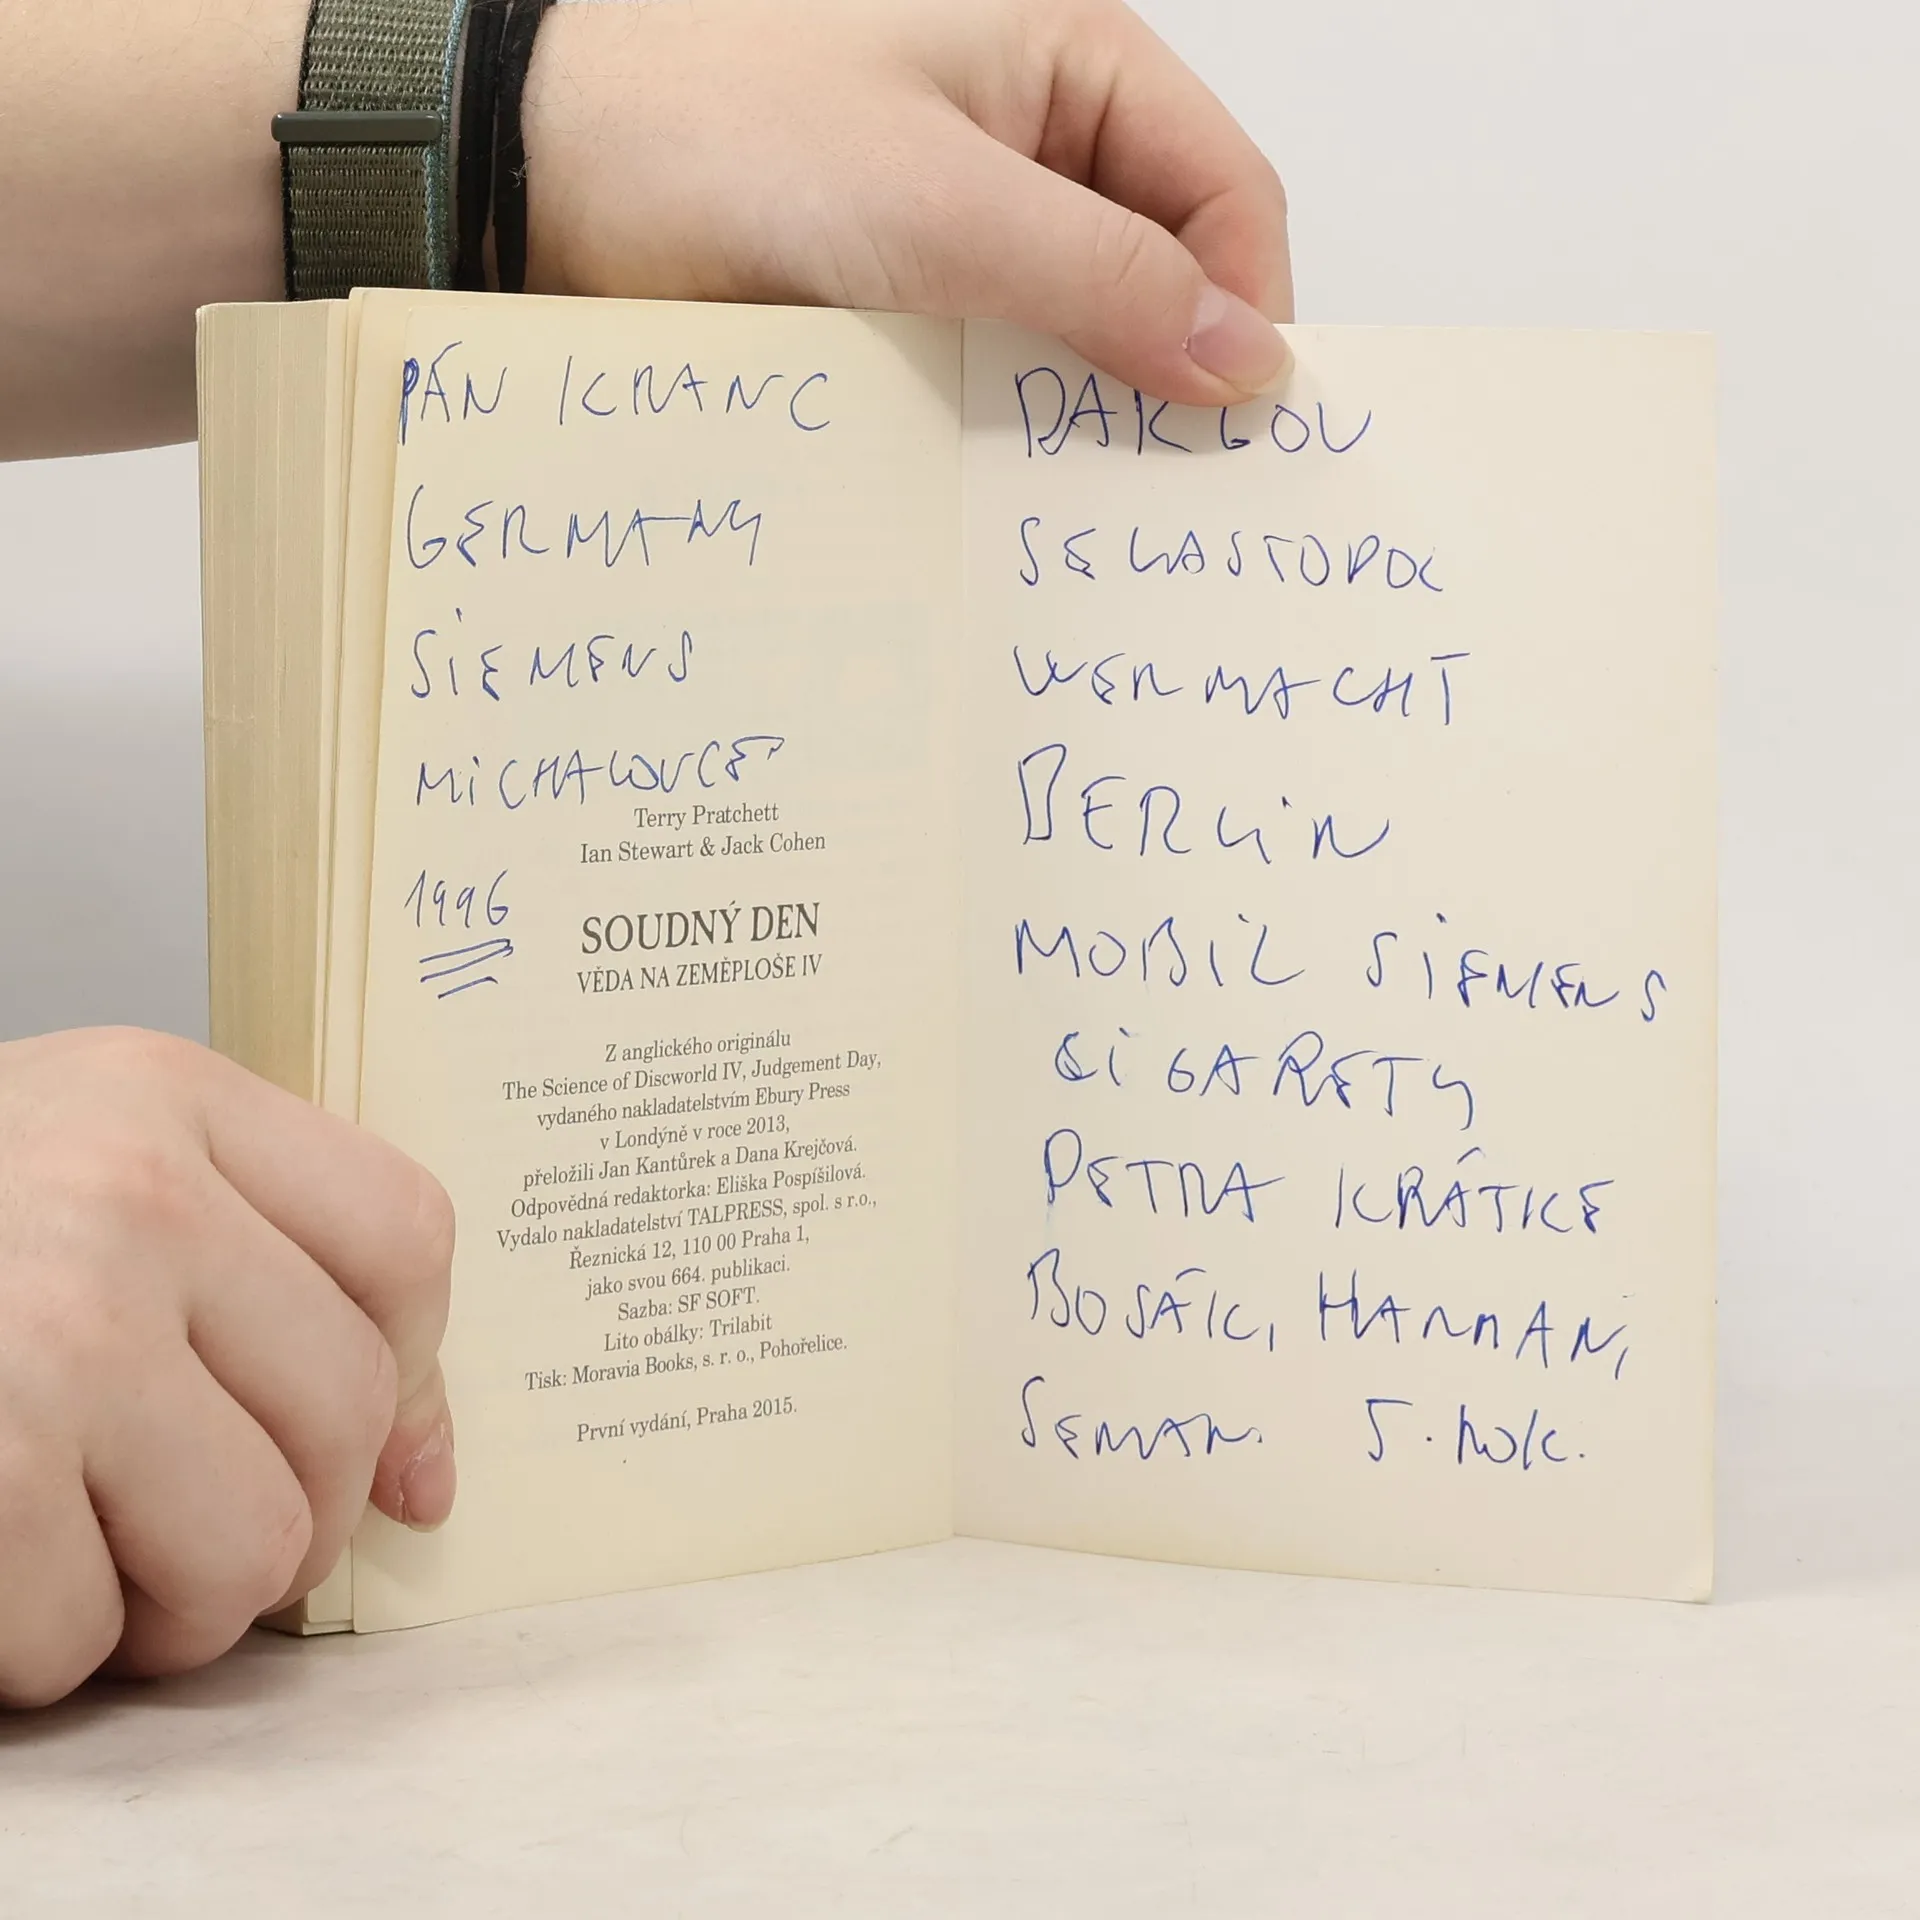 PÁN KRANC
GERMANY
SIEMENS
MICHALOVCE
1996
Terry Pratchett
Ian Stewart & Jack Cohen
SOUDNÝ DEN
VĚDA NA ZEMĚPLOŠE IV
Z anglického originálu
The Science of Discworld IV, Judgement Day,
vydaného nakladatelstvím Ebury Press
v Londýně v roce 2013,
přeložili Jan Kantůrek a Dana Krejčová.
Odpovědná redaktorka: Eliška Pospíšilová.
Vydalo nakladatelství TALPRESS, spol. s r.o.,
Řeznická 12, 110 00 Praha 1,
jako svou 664. publikaci.
Sazba: SF SOFT.
Lito obálky: Trilabit
Tisk: Moravia Books, s. r. o., Pohořelice.
První vydání, Praha 2015.
SEVASTOPOL
WERMACHT
BERLIN
MOBIL SIEMENS
CIGARETY
PETRA KRÁTKE
BOSÁK, HARMAN,
SEMAN. 5. ROK.